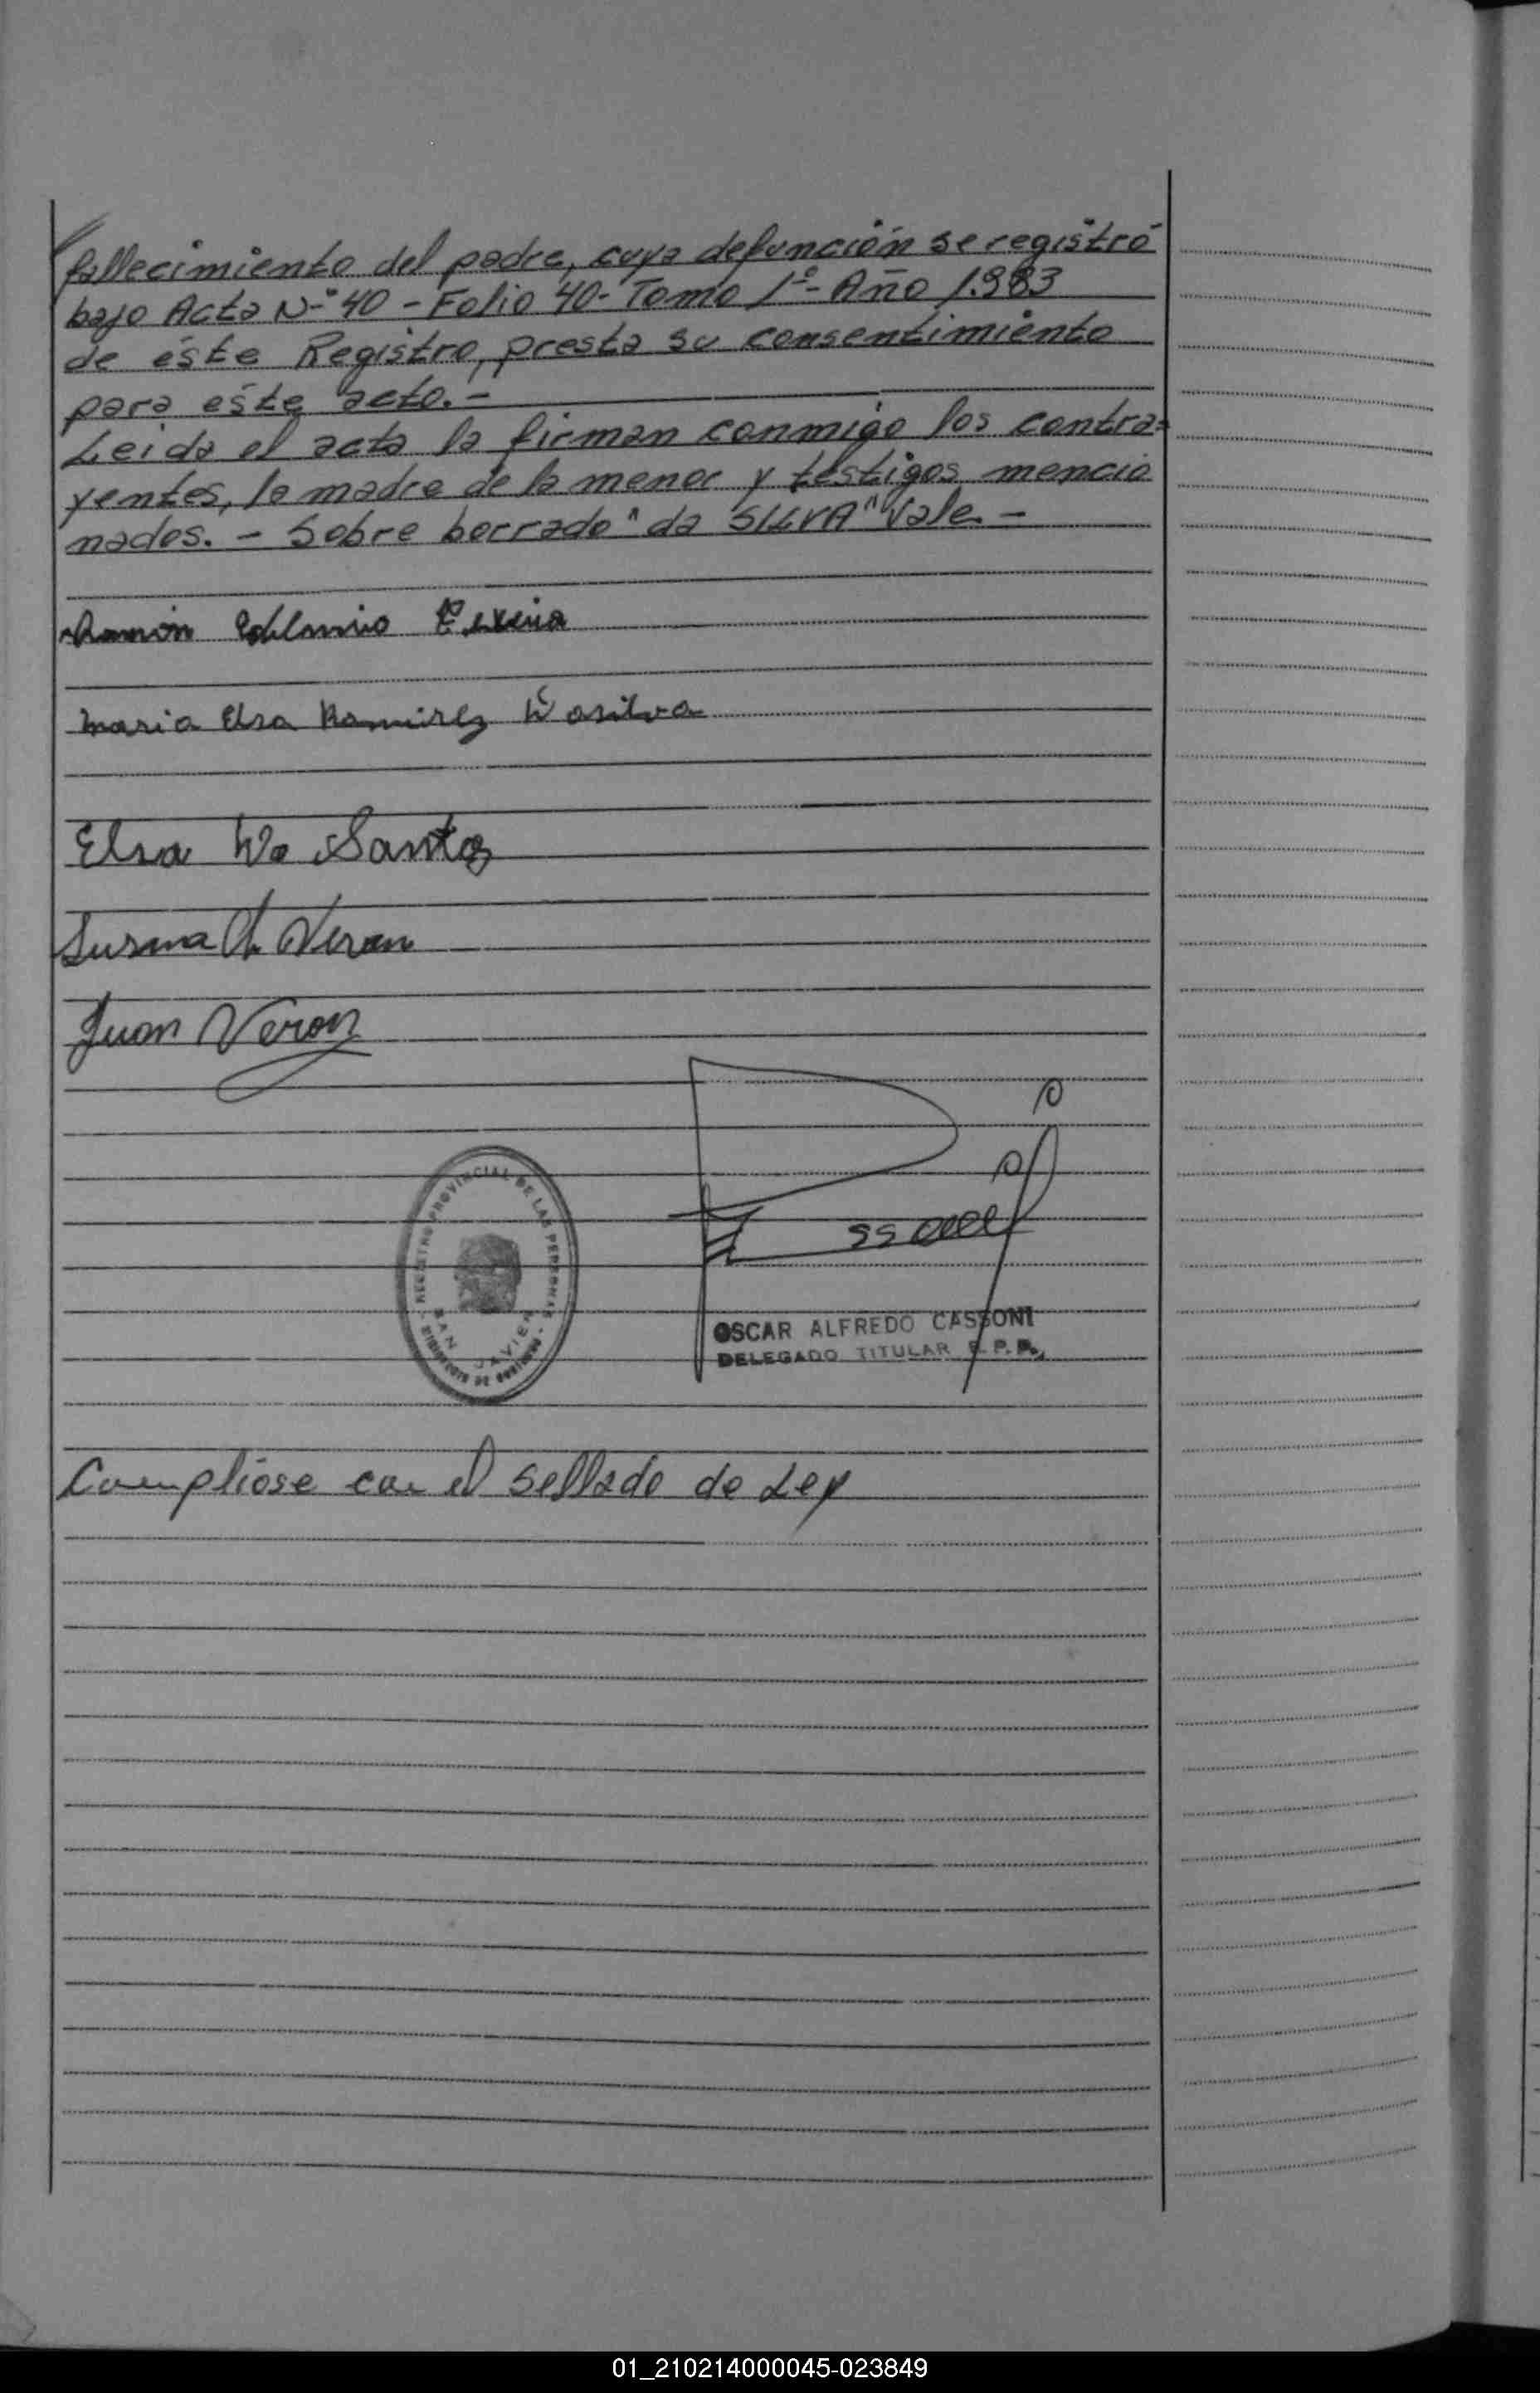 fallecimiento del padre, cuya defunción se registró
bajo Acta N° 40 - Folio 40 - Tomo 1° - Año 1.983
de éste Registro, presta su consentimiento
para este acto. -
Leida el acta la firman conmigo los contra=
yentes, la madre de la menor y testigos mencio
nados. - Sobre borrado "da SILVA" Vale. -
Ramón
Maria Elsa Ramirez Dasilva
Elsa Do Santos
Susana Veron
Juan Veron
REGISTRO PROVINCIAL DE LAS PERSONAS
SAN JAVIER
OSCAR ALFREDO CASSONI
DELEGADO TITULAR R. P. P.
Compliose con el sellado de Ley
01_210214000045-023849